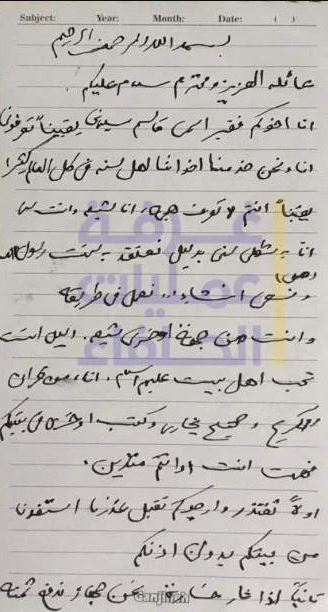 Subject: Year: Month: Date: ( )
بسم الله الرحمن الرحيم
عائله العزيز ومحترم سلام عليكم
انا اخوكم فقير اسمي قاسم سليماني يقيناً تعرفوني
انا ونحن خدمنا اخواننا اهل سنه في كل العالم كثيرا
يقيناً انتم انا شيعي وانت سني
انا بشكل سني بدليل نعتقد بسنت رسول الله
(ص)
و نحن انشاء الله نعمل في طريقه
وانت من جهة اخرى شيعي. اليل انت
تحب اهل بيت عليهم السلام. انا من قران
الكريم و صحيح بخاري وكتب اخرى في بيتكم
فهمت انت او انتم متدين.
اولاً نعتذر وارجوكم تقبل عذرنا استفدنا
من بيتكم بدون اذنكم
ثانياً اذا صار خسارة نحن جهاز ندفع ثمنه
غرفة
عمليات
الحلفاء